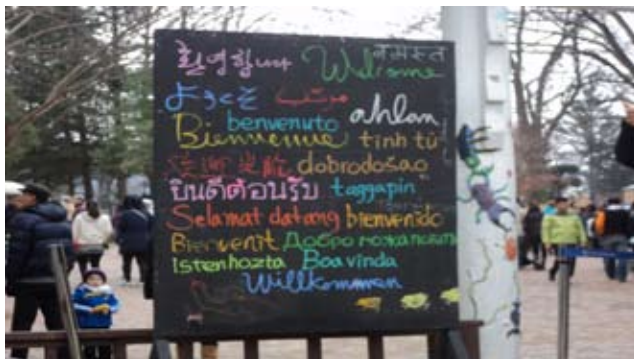 환영합니다 Welcome नमस्ते
ようこそ مرحبا ahlan
benvenuto
Bienvenue tinh tú
dobrodosao
ยินดีต้อนรับ taggapin
Selamat datang bienvenido
Bienvenit Добро пожаловать
istenhozta Boavinda
Willkomman